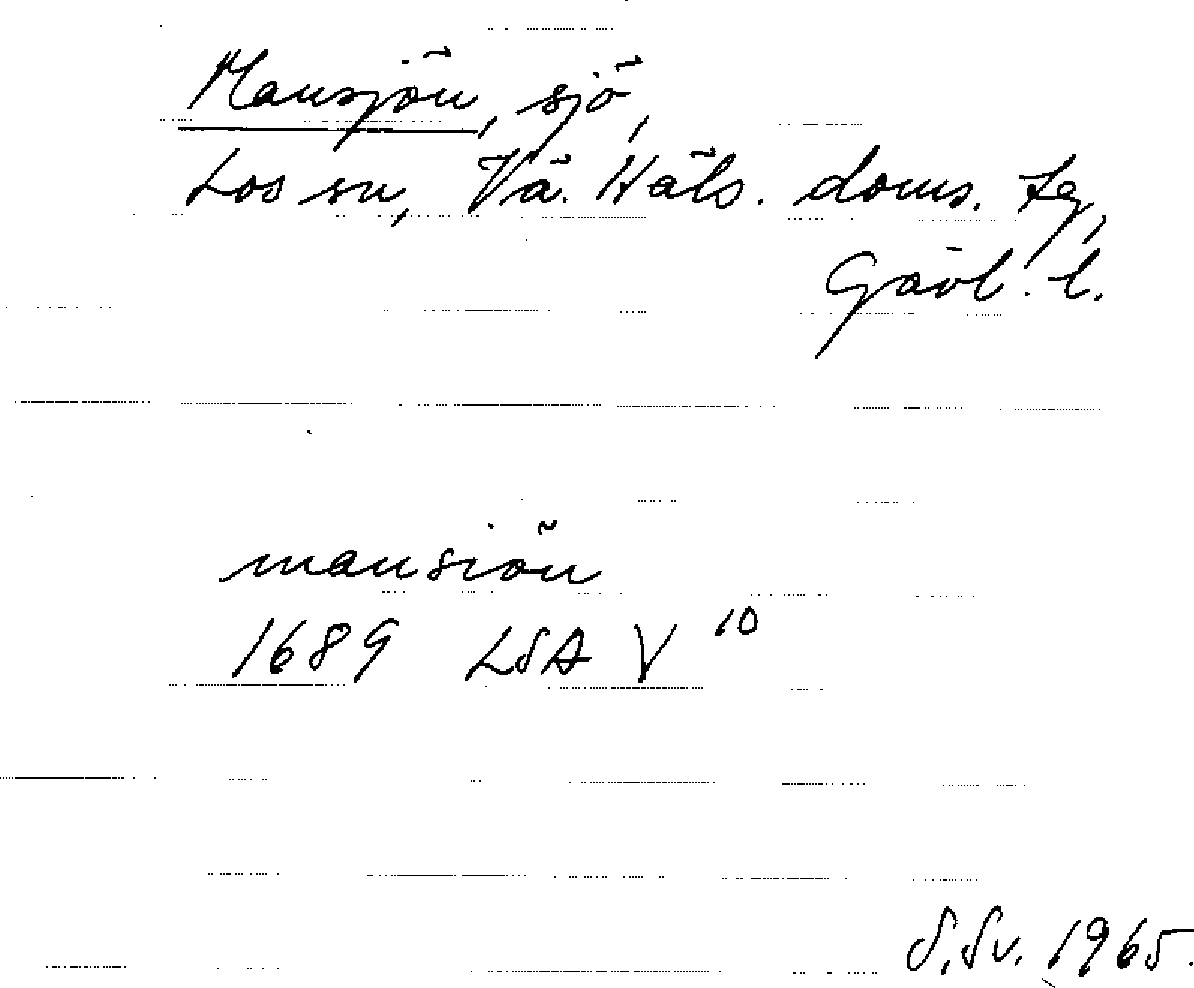 Mansjön, sjö,
Los sn, Vä. Häls. doms. tg,
Gävl. l.
mansiön
1689 LSA V 10
S.Sv. 1965.